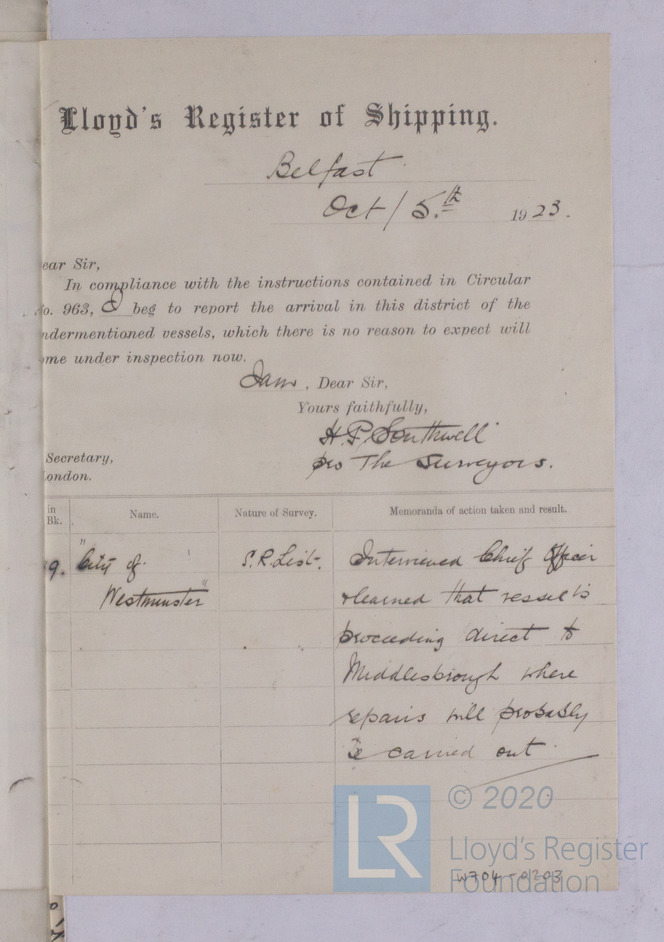 Lloyd's Register of Shipping.
Belfast
Oct / 5.th 1923.
ear Sir,
In compliance with the instructions contained in Circular
o. 963, I beg to report the arrival in this district of the
ndermentioned vessels, which there is no reason to expect will
me under inspection now.
I am, Dear Sir,
Yours faithfully,
H. P. Southwell
pro The Surveyors.
Secretary,
ondon.
in
Bk. Name. Nature of Survey. Memoranda of action taken and result.
9. "City of S.R. List. Interviewed Chief Officer
Westminster" & learned that vessel is
proceeding direct to
Middlesbrough where
repairs will probably
be carried out
LR © 2020
Lloyd's Register
Foundation
W704-0203